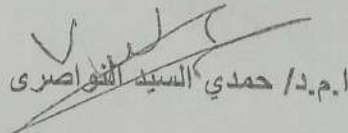 ا.م.د/ حمدي السيد النواصرى